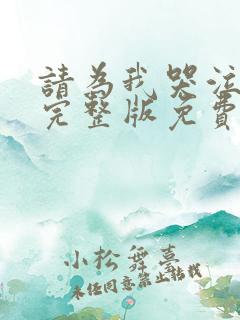 請為我哭泣
完整版免費
小松舞臺
未經同意禁止轉載